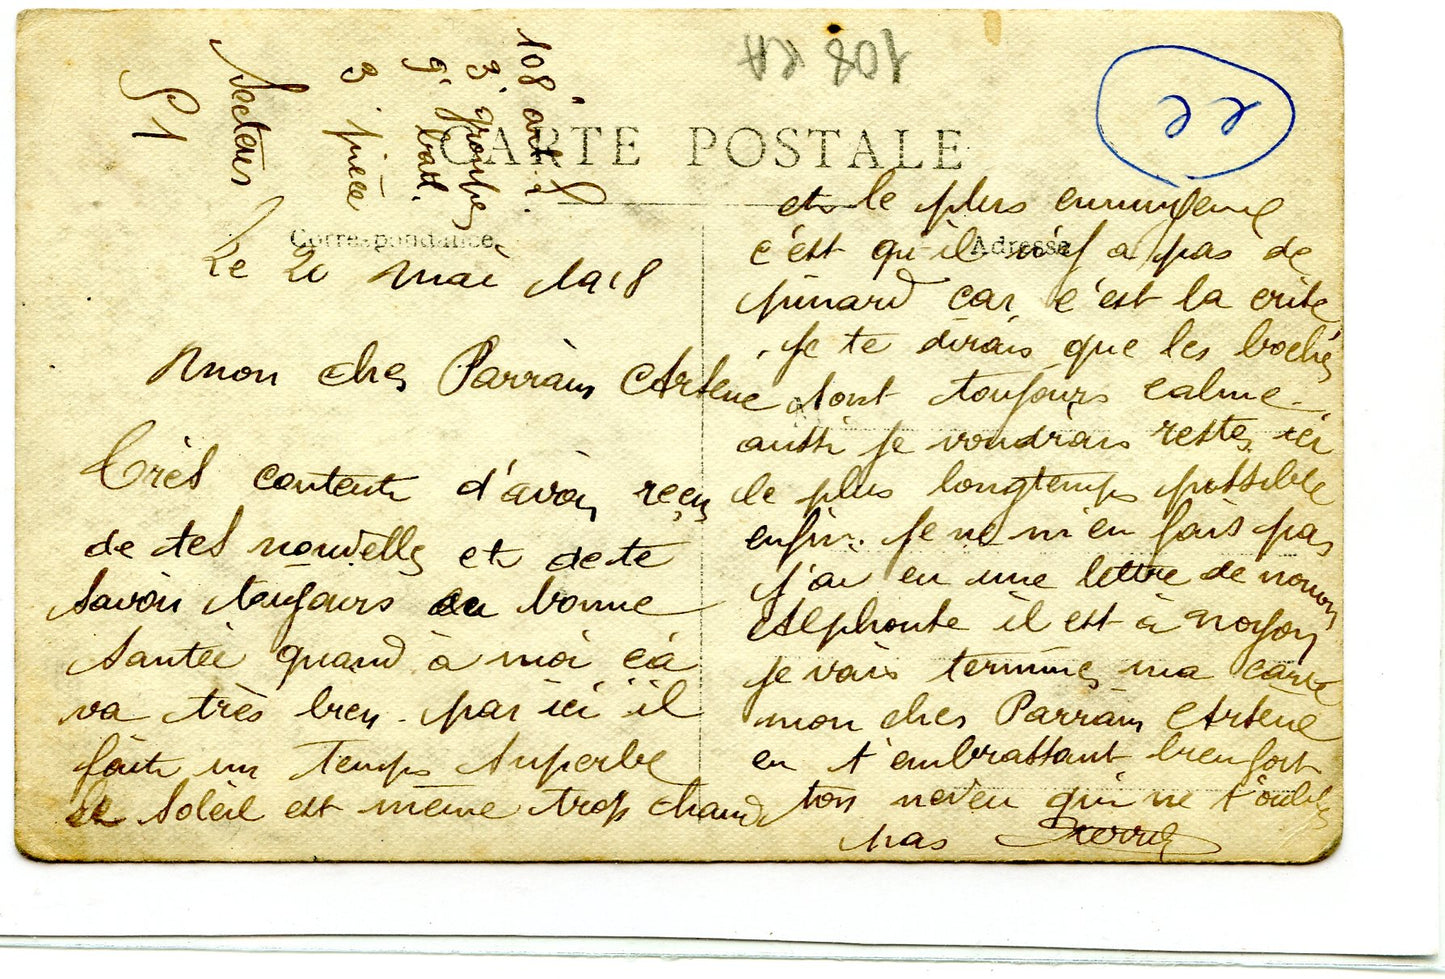 108 KA
CARTE POSTALE
Correspondance
Adresse
108e art. L.
3e groupe
9e batt.
3e pièce
Secteur
51
Le 20 mai 1918
Mon cher Parrain Arsène
Très contente d'avoir reçu
de tes nouvelles et de te
savoir toujours en bonne
santée quand à moi ça
va très bien. par ici il
faite un temps superbe
le soleil est même trop chaud
et le plus ennuyeux
c'est qu'il n'y a pas de
pinard car c'est la crise
je te dirais que les boches
sont toujours calme
aussi je voudrais rester ici
le plus longtemps possible
enfin je ne m'en fais pas
j'ai eu une lettre de nonon
Alphonse il est à Noyon
je vais terminer ma carte
mon cher Parrain Arsène
en t'embrassant bien fort
ton neveu qui ne t'oublie
pas Pierre